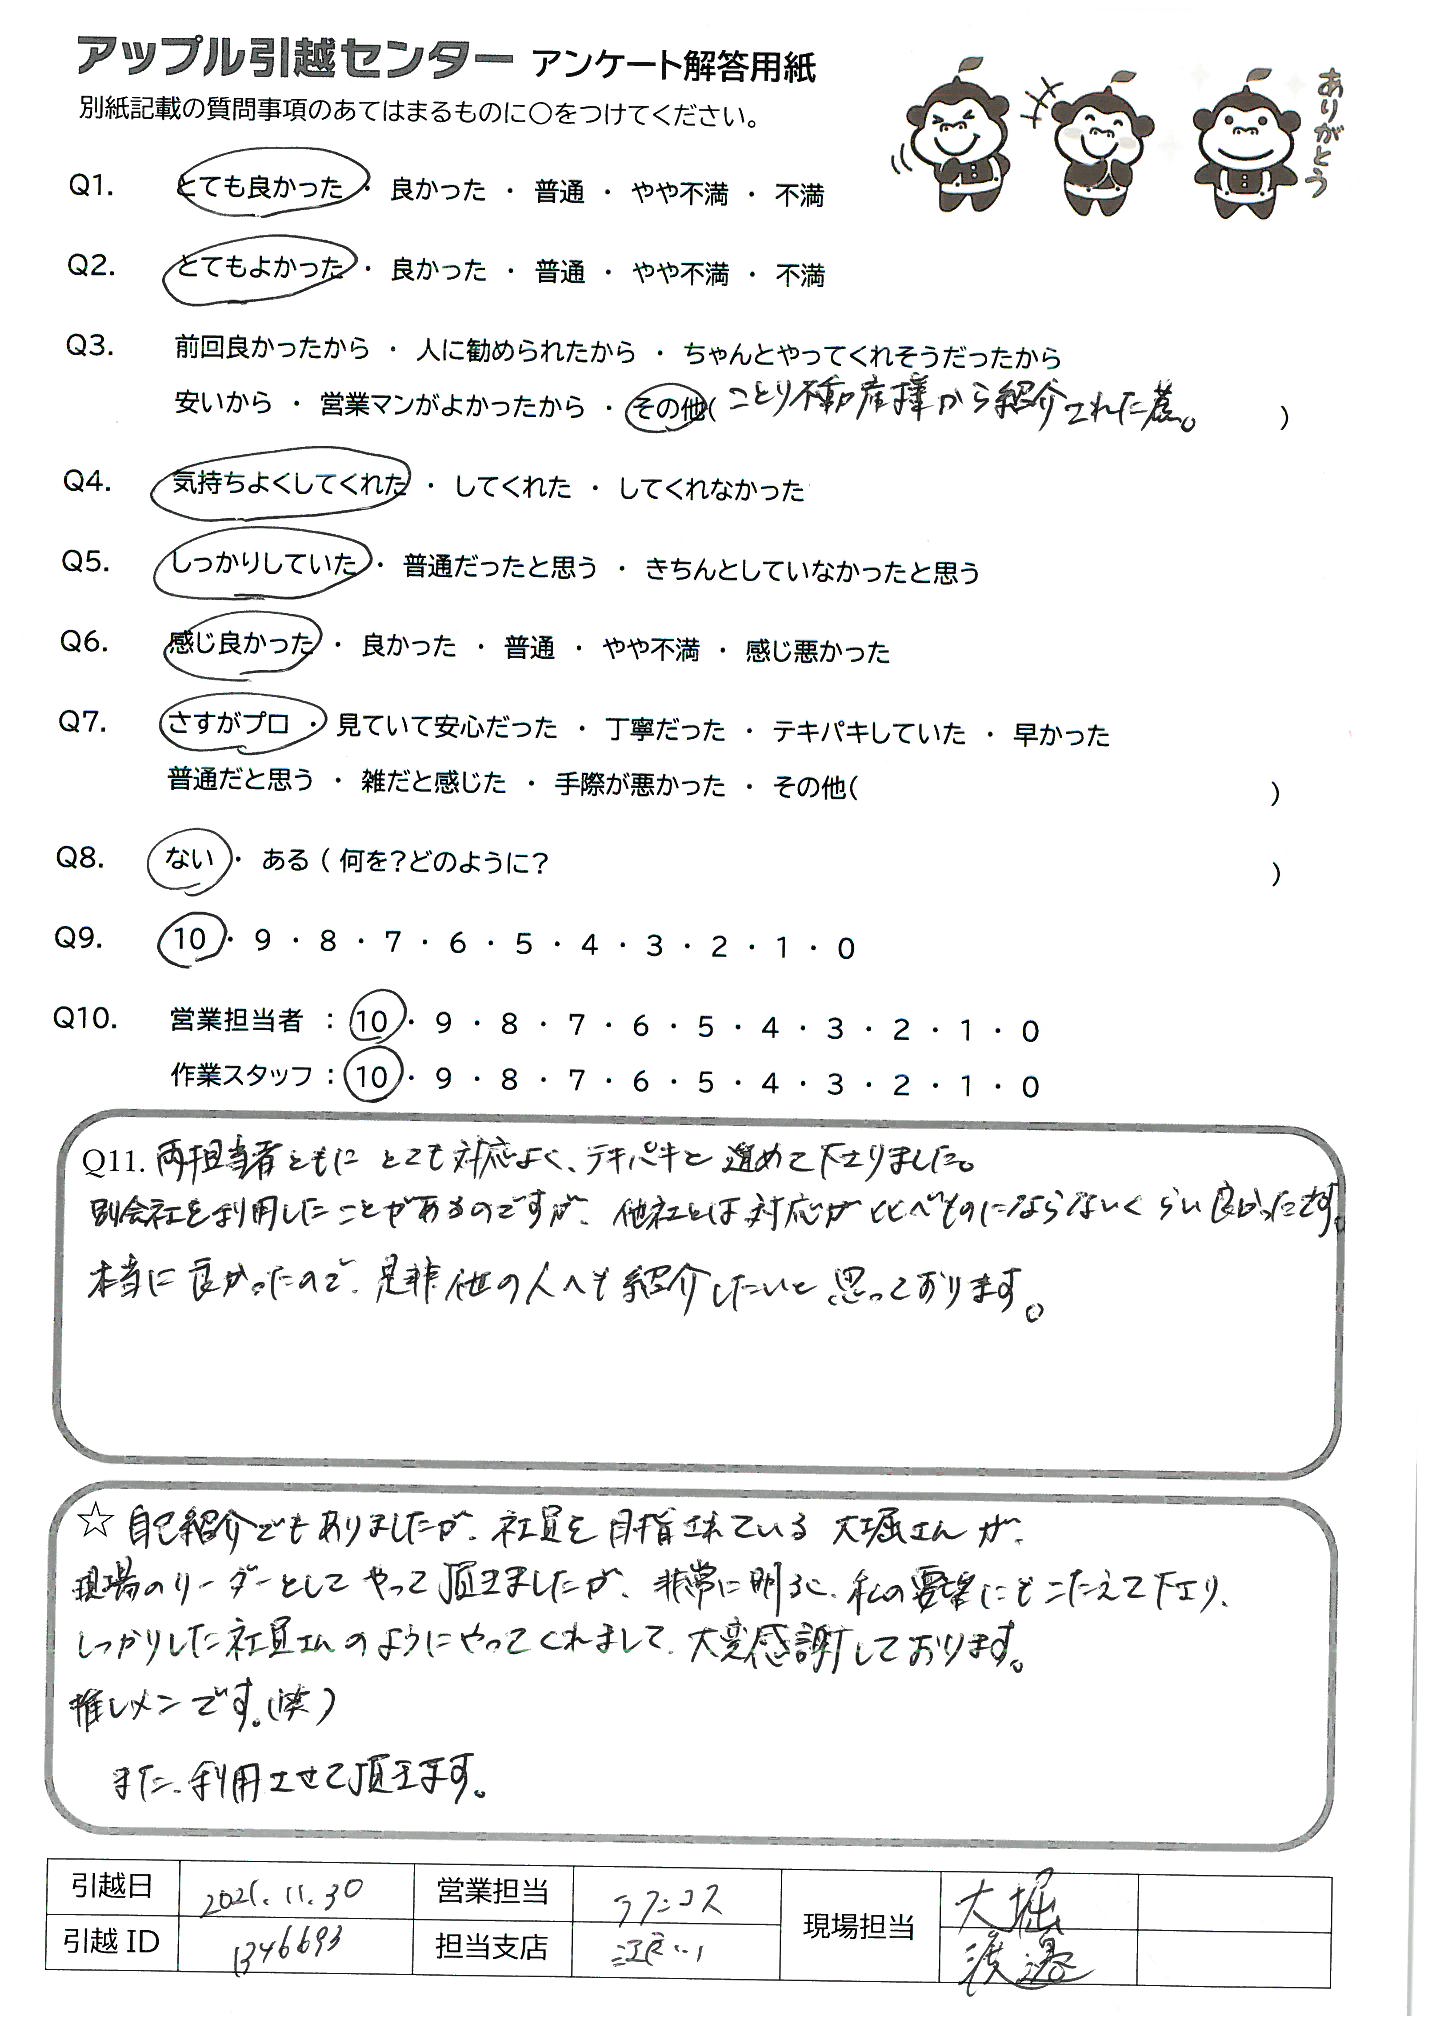 アップル引越センター アンケート解答用紙
別紙記載の質問事項のあてはまるものに〇をつけてください。
ありがとう
Q1. とても良かった ・ 良かった ・ 普通 ・ やや不満 ・ 不満
Q2. とてもよかった ・ 良かった ・ 普通 ・ やや不満 ・ 不満
Q3. 前回良かったから ・ 人に勧められたから ・ ちゃんとやってくれそうだったから
安いから ・ 営業マンがよかったから ・ その他( ことり不動産様から紹介された為。 )
Q4. 気持ちよくしてくれた ・ してくれた ・ してくれなかった
Q5. しっかりしていた ・ 普通だったと思う ・ きちんとしていなかったと思う
Q6. 感じ良かった ・ 良かった ・ 普通 ・ やや不満 ・ 感じ悪かった
Q7. さすがプロ ・ 見ていて安心だった ・ 丁寧だった ・ テキパキしていた ・ 早かった
普通だと思う ・ 雑だと感じた ・ 手際が悪かった ・ その他( )
Q8. ない ・ ある ( 何を?どのように? )
Q9. 10 ・ 9 ・ 8 ・ 7 ・ 6 ・ 5 ・ 4 ・ 3 ・ 2 ・ 1 ・ 0
Q10. 営業担当者 : 10 ・ 9 ・ 8 ・ 7 ・ 6 ・ 5 ・ 4 ・ 3 ・ 2 ・ 1 ・ 0
作業スタッフ : 10 ・ 9 ・ 8 ・ 7 ・ 6 ・ 5 ・ 4 ・ 3 ・ 2 ・ 1 ・ 0
Q11. 両担当者ともに とても対応よく、テキパキと 進めて下さりました。
別会社を利用したことがあるのですが、他社とは対応がくらべものにならないくらい良かったです。
本当に良かったので、是非他の人へも紹介したいと思っております。
☆ 自己紹介でもありましたが、社員を目指されている 大堀さんが、
現場のリーダーとしてやって頂きましたが、非常に明るく、私の要望にもこたえて下さり、
しっかりした社員さんのようにやってくれまして、大変感謝しております。
推しメンです。(笑)
また、利用させて頂きます。
引越日 2021.11.30 営業担当 現場担当 大堀
引越ID 1346693 担当支店 渡邊